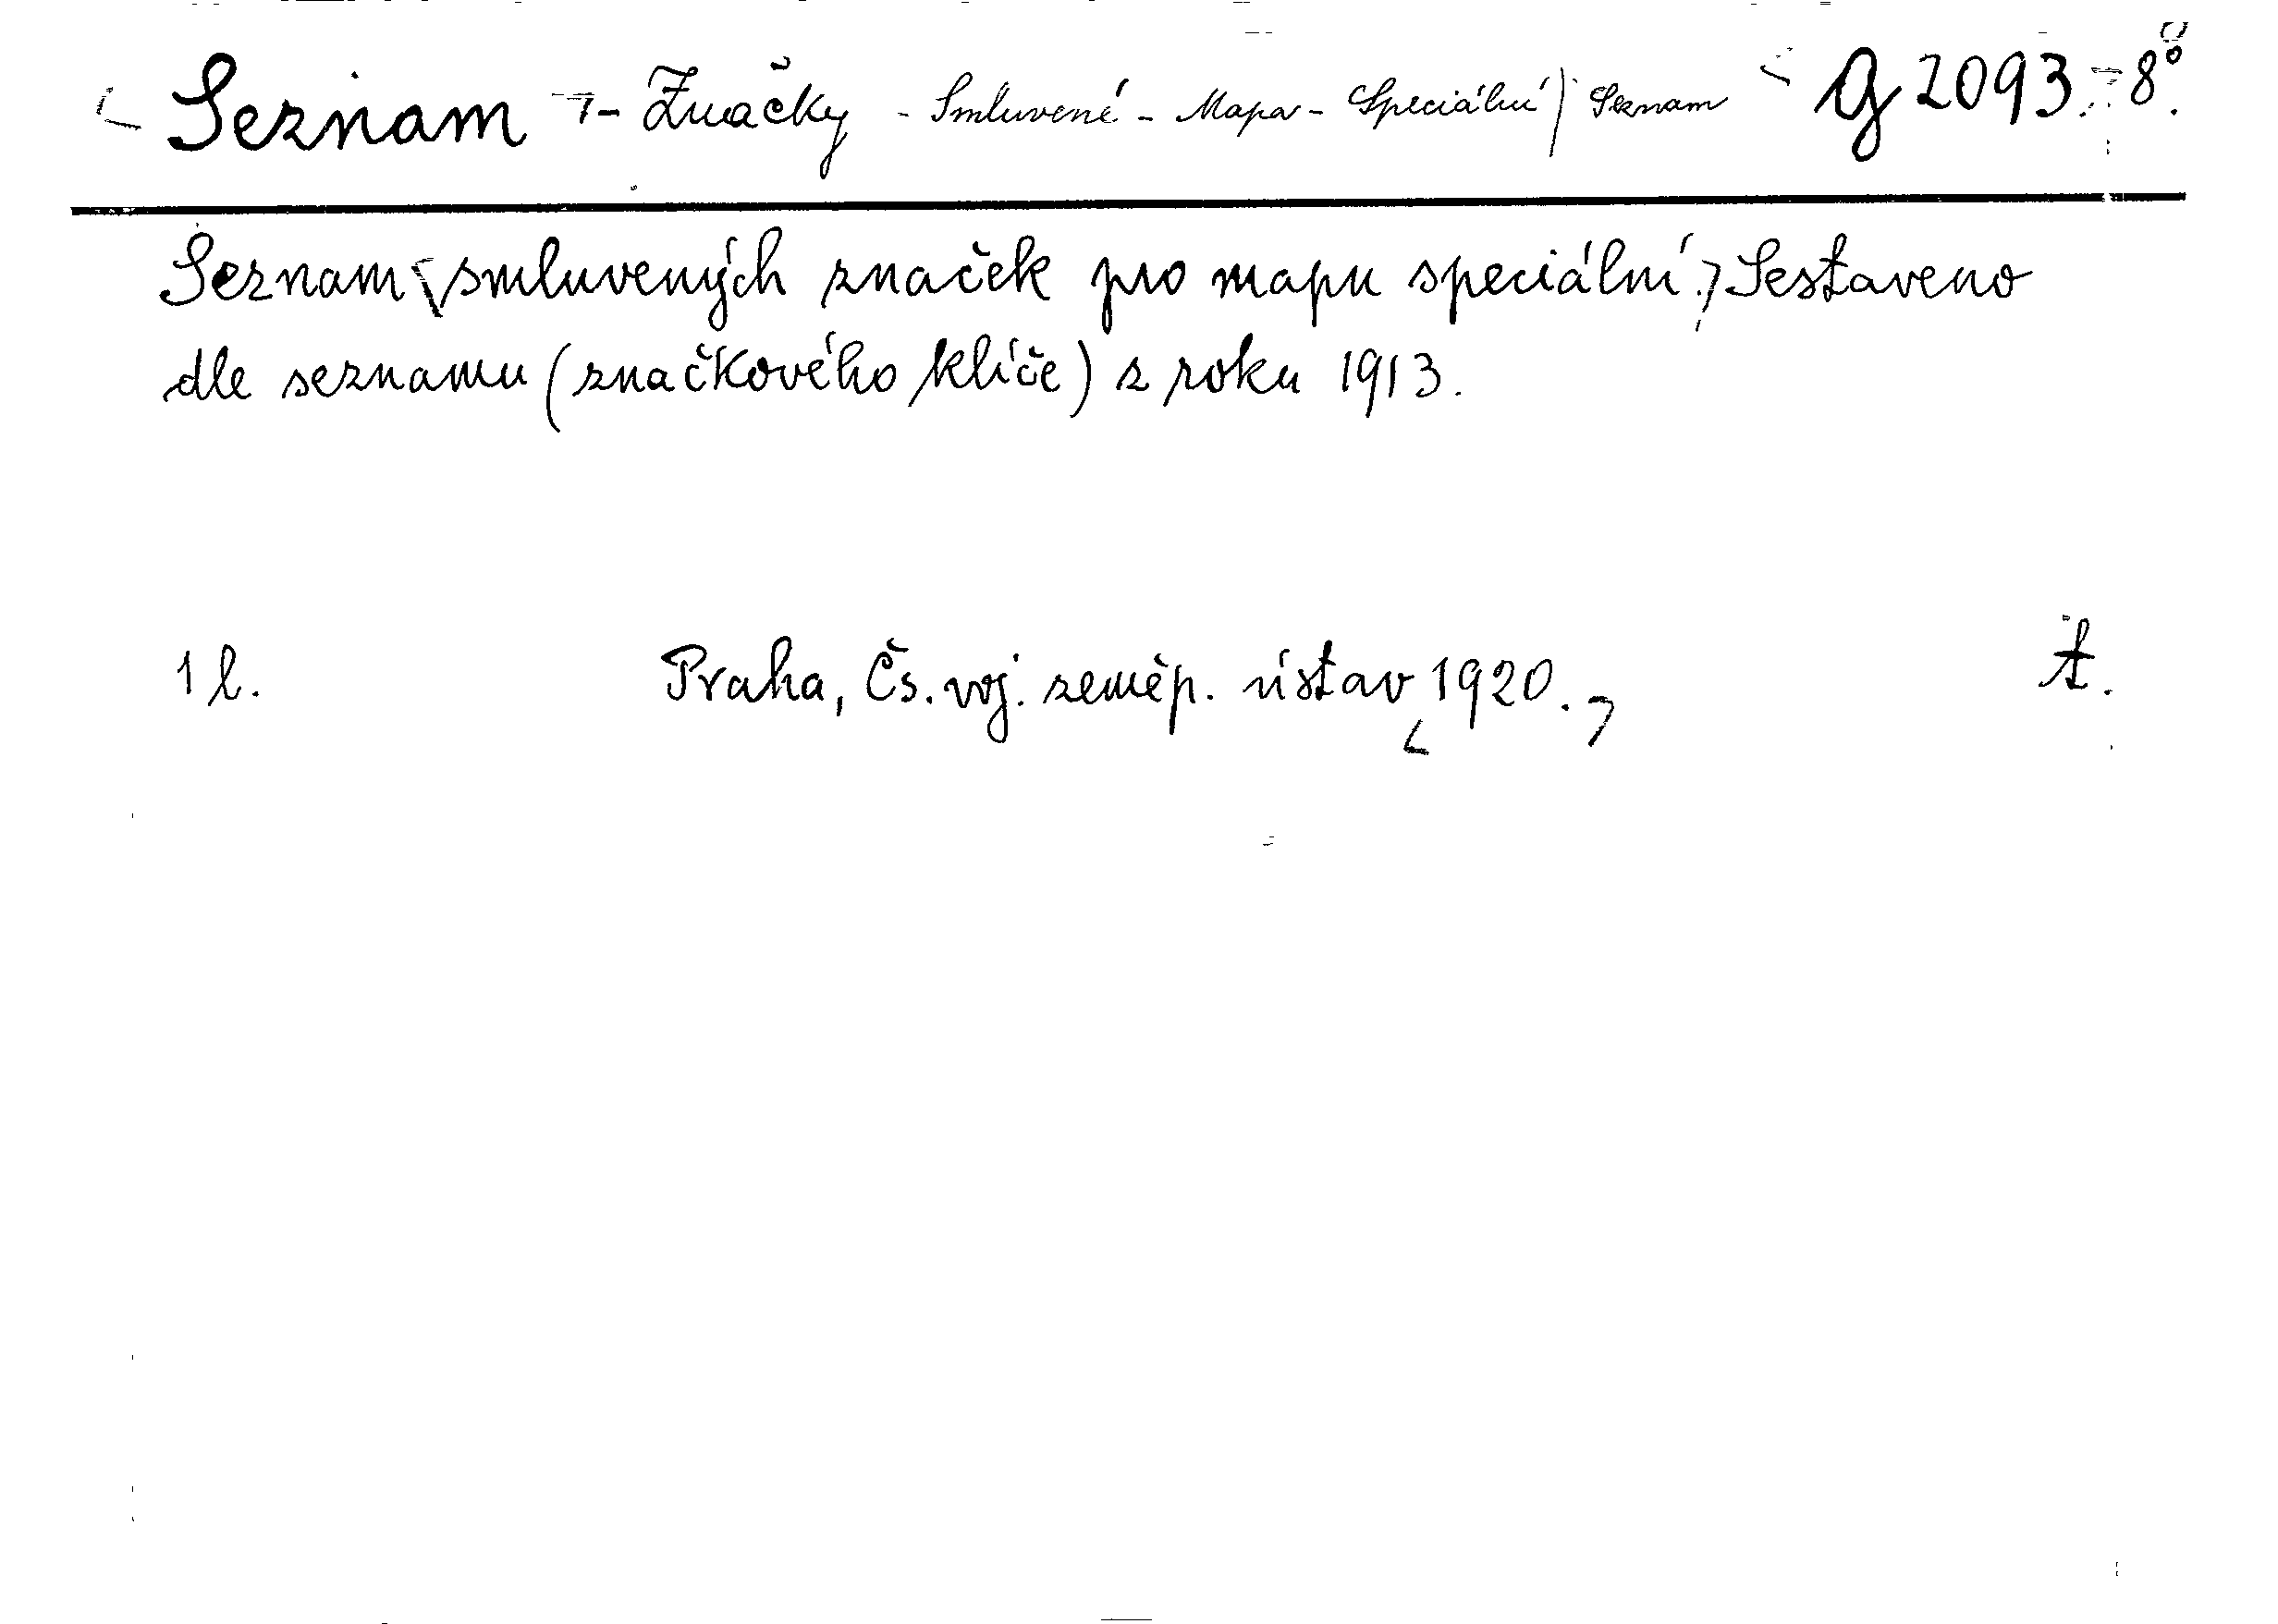 Seznam - Značky - Smluvené - Mapa - Speciální) Seznam G 2093.-8°.
Seznam smluvených značek pro mapu speciální. Sestaveno
dle seznamu (značkového klíče) z roku 1913.
1 l. Praha, Čs. voj. zeměp. ústav 1920. t.